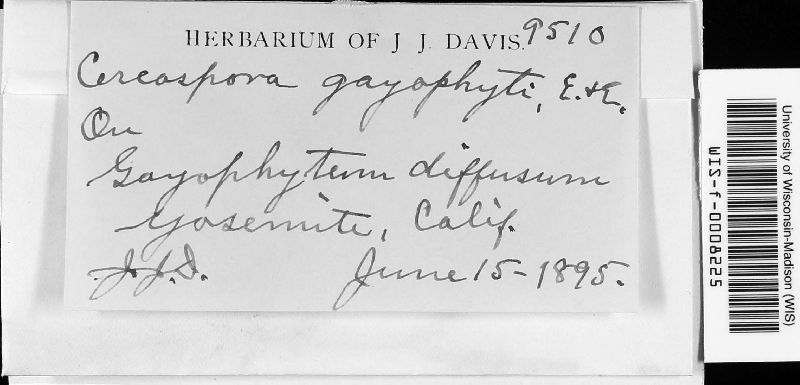 HERBARIUM OF J J. DAVIS. 9510
Cercospora gayophyti, E. & E.
On
Gayophytum diffusum
Yosemite, Calif.
J.J.D. June 15-1895.
University of Wisconsin-Madison (WIS)
WIS-f-0008225